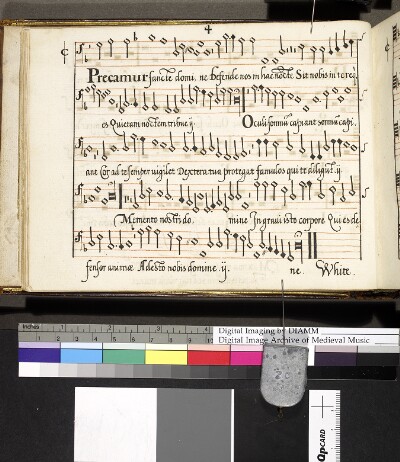 4
Precamur sancte domine Defende nos in hac nocte Sit nobis in te req
es Quietam noctem tribue ij
Oculi somnum capiant somnum capi
ant Cor ad te semper vigilet Dextera tua protegat famulos qui te diligunt ij
Memento nostri do mine In gravi isto corpore Qui es de
fensor animae Adesto nobis domine ij. ne. White.
Inches 1 2 3 4 5
Digital Imaging by DIAMM
Digital Image Archive of Medieval Music
QPCARD